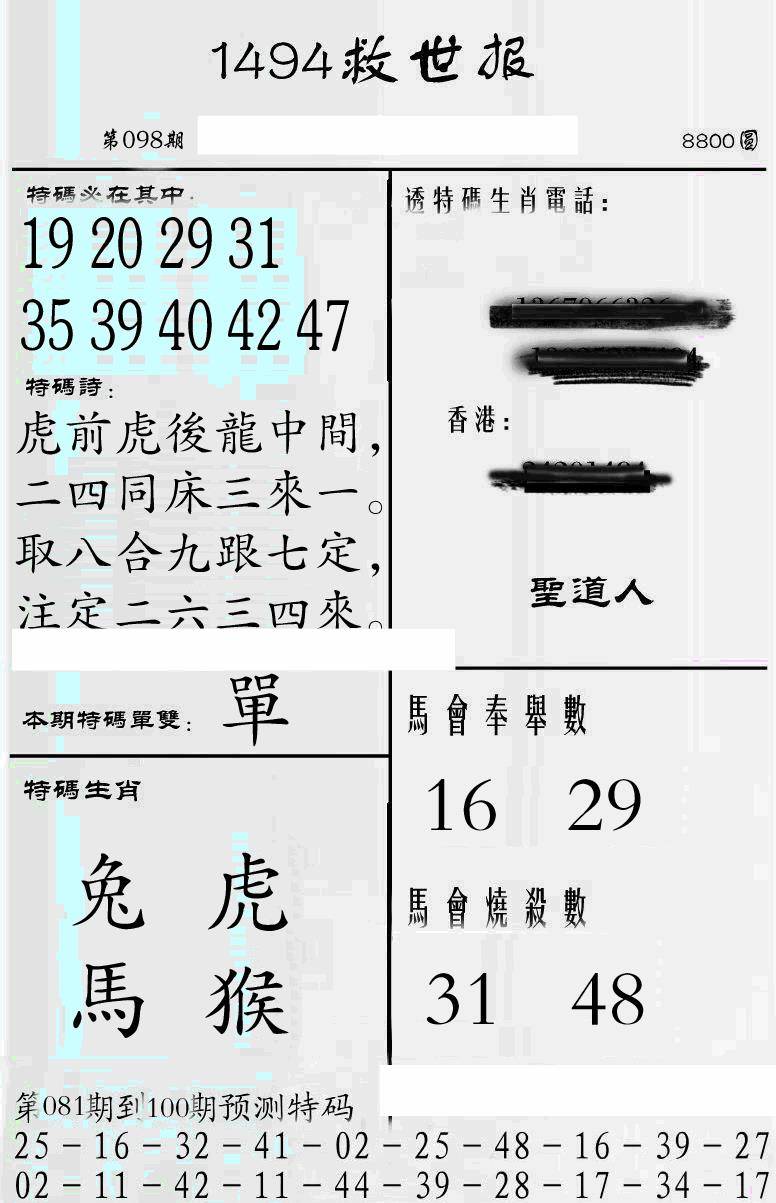 1494救世报
第098期
8800圓
特碼必在其中:
19 20 29 31
35 39 40 42 47
特碼詩:
虎前虎後龍中間，
二四同床三來一。
取八合九跟七定，
注定二六三四來。
本期特碼單雙: 單
特碼生肖
兔 虎
馬 猴
透特碼生肖電話:
香港:
聖道人
馬會奉舉數
16 29
馬會燒殺數
31 48
第081期到100期预测特码
25－16－32－41－02－25－48－16－39－27
02－11－42－11－44－39－28－17－34－17